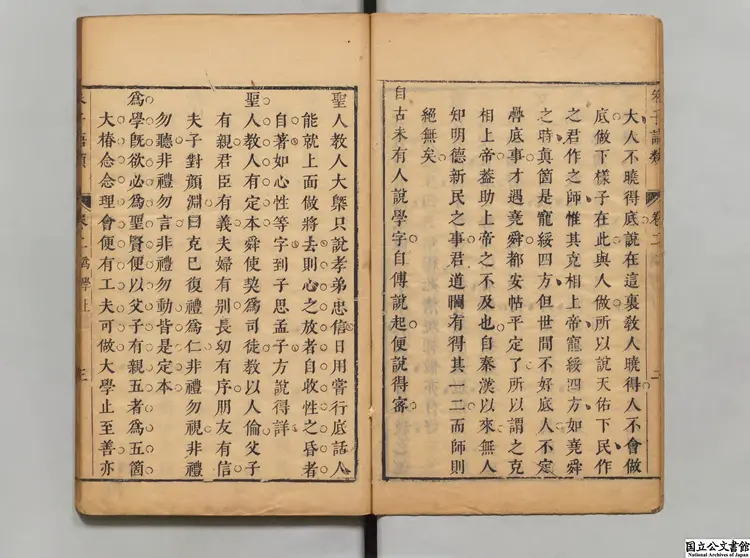 大人不曉得底說在這裏教人曉得人不會做
底做下樣子在此與人做所以說天佑下民作
之君作之師惟其克相上帝寵綏四方如堯舜
之時眞箇是寵綏四方但世間不好底人不定
疊底事才遇堯舜都安帖平定了所以謂之克
相上帝葢助上帝之不及也自秦漢以來無人
知明德新民之事君道間有得其一二而師則
絕無矣
自古未有人說學字自傳說起便說得審
聖人教人大槩只說孝弟忠信日用常行底話人
能就上面做將去則心之放者自收性之昏者
自著如心性等字到子思孟子方說得詳
聖人教人有定本舜使契為司徒教以人倫父子
有親君臣有義夫婦有別長幼有序朋友有信
夫子對顏淵曰克己復禮為仁非禮勿視非禮
勿聽非禮勿言非禮勿動皆是定本
為學旣欲必為聖賢便以父子有親五者為五箇
大樁念念理會便有工夫可做大學止至善亦
朱子語類 卷二 為學上 三
国立公文書館
National Archives of Japan